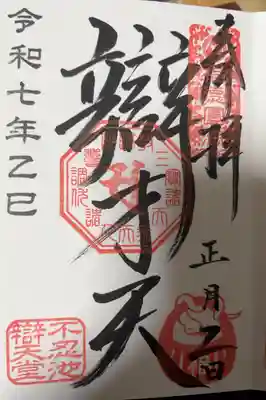 奉拝
正月二日
辯才天
令和七年乙巳
不忍池
辯天堂